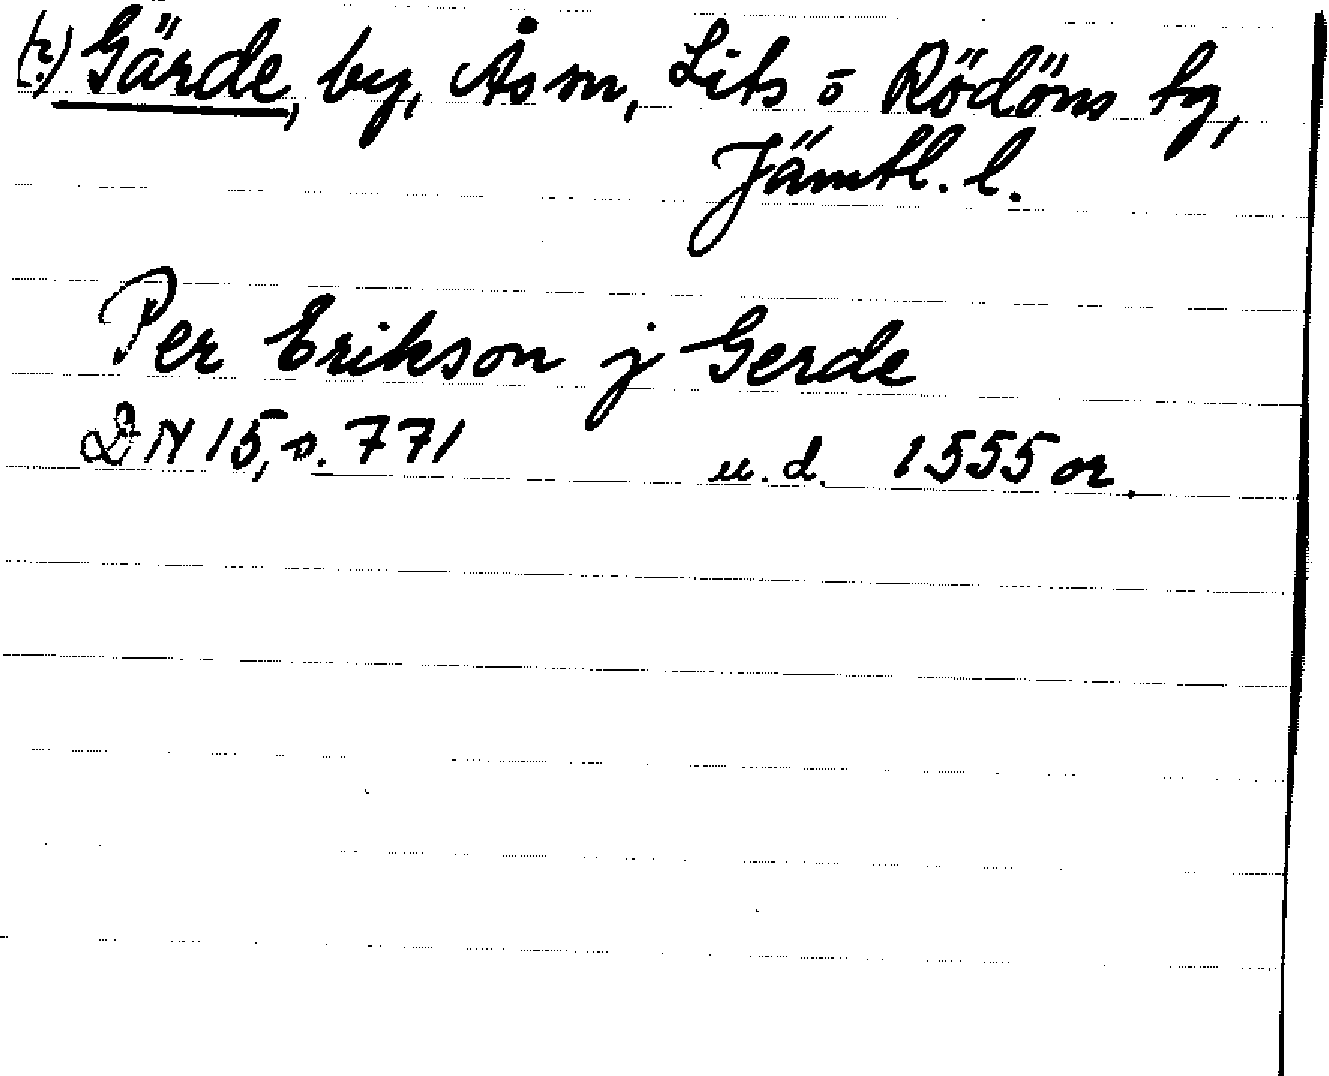 (?) Gärde, by, Ås sn, Lits o Rödöns tg,
Jämtl. l.
Per Erikson j Gerde
DN 15, s. 771 u. d. 1555 or.